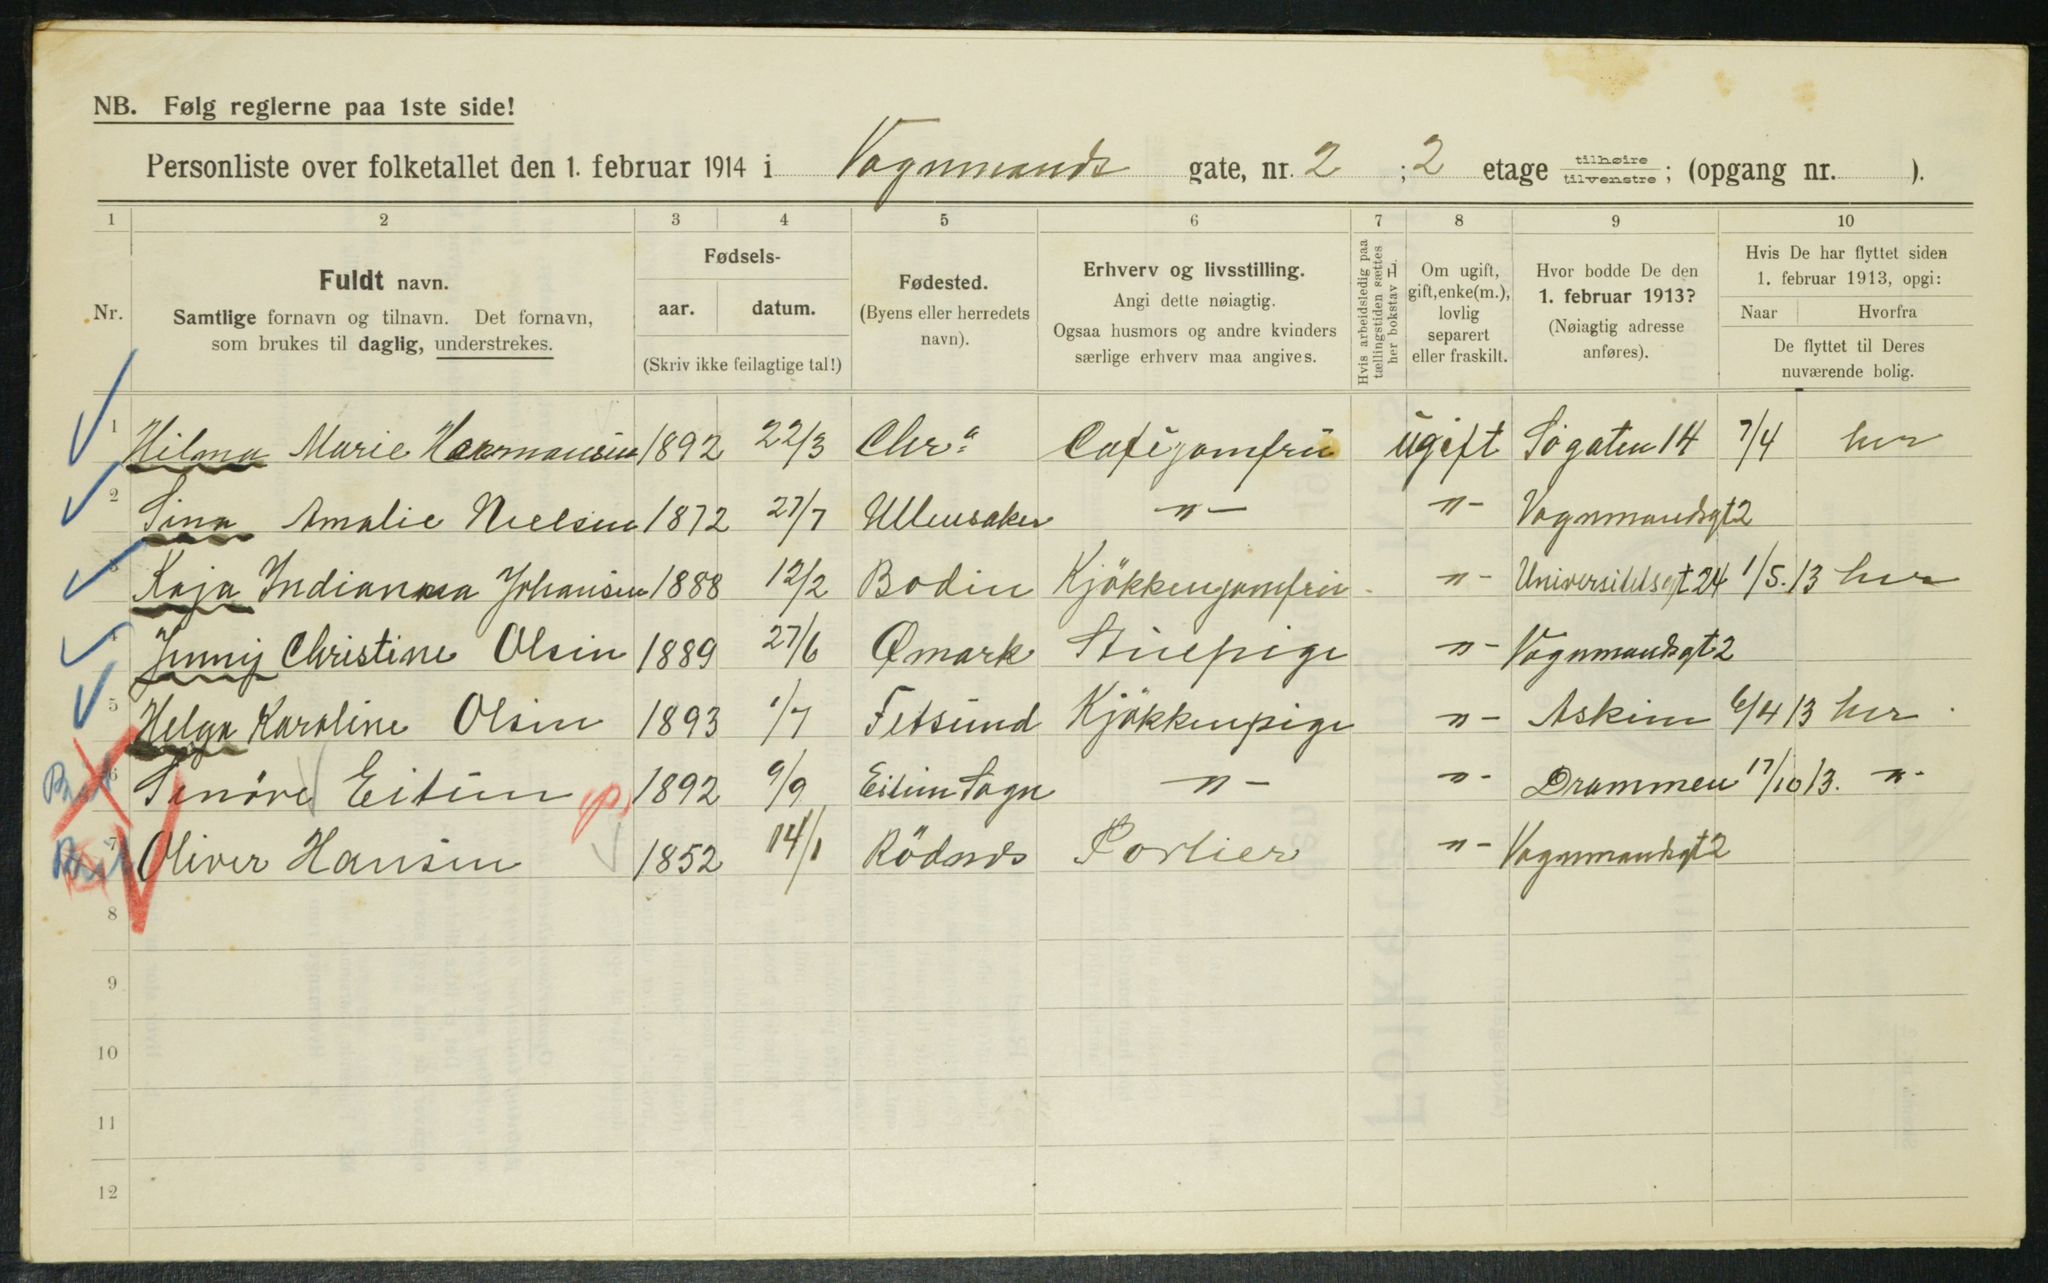 NB. Følg reglerne paa 1ste side!
Personliste over folketallet den 1. februar 1914 i Vognmands gate, nr. 2 ; 2 etage tilhøire tilvenstre; (opgang nr. ).
1 2 3 4 5 6 7 8 9 10
Nr.
Fuldt navn.
Samtlige fornavn og tilnavn. Det fornavn,
som brukes til daglig, understrekes.
Fødsels-
aar. datum.
(Skriv ikke feilagtige tal!)
Fødested.
(Byens eller herredets
navn).
Erhverv og livsstilling.
Angi dette nøiagtig.
Ogsaa husmors og andre kvinders
særlige erhverv maa angives.
Hvis arbeidsledig paa
tællingstiden sættes
her bokstav L.
Om ugift,
gift, enke(m.),
lovlig
separert
eller fraskilt.
Hvor bodde De den
1. februar 1913?
(Nøiagtig adresse
anføres).
Hvis De har flyttet siden
1. februar 1913, opgi:
Naar Hvorfra
De flyttet til Deres
nuværende bolig.
1 Hilma Marie Hermansen 1892 22/3 Chr.a Caféjomfru ugift Søgaten 14 7/4 her
2 Sina Amalie Nielsen 1872 27/7 Ullensaker -"- -"- Vognmandsgt 2
3 Kaja Indianna Johansen 1888 12/2 Bodin Kjökkenjomfru -"- Universitetsgt 24 1/5. 13 her
4 Jenny Christine Olsen 1889 27/6 Ømark Stuepige -"- Vognmandsgt 2
5 Helga Karoline Olsen 1893 1/7 Fetsund Kjökkenpige -"- Askim 6/4 13 her
6 Sinöve Eitun 1892 9/9 Eitun Sogn -"- -"- Drammen 17/10 13. -"-
7 Oliver Hansen 1852 14/1 Rödnes Portier -"- Vognmandsgt 2
8
9
10
11
12